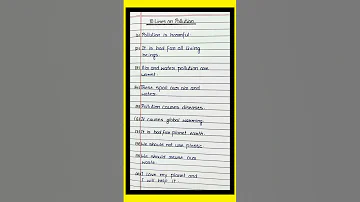 10 Lines on Pollution
(1) Pollution is harmful.
(2) It is bad for all living
beings.
(3) Air and water pollution are
worst.
(4) These spoil our air and
water.
(5) Pollution causes diseases.
(6) It causes global warming.
(7) It is bad for planet earth.
(8) We should not use plastic.
(9) We should reuse our
waste.
(10) I love my planet and
I will help it.